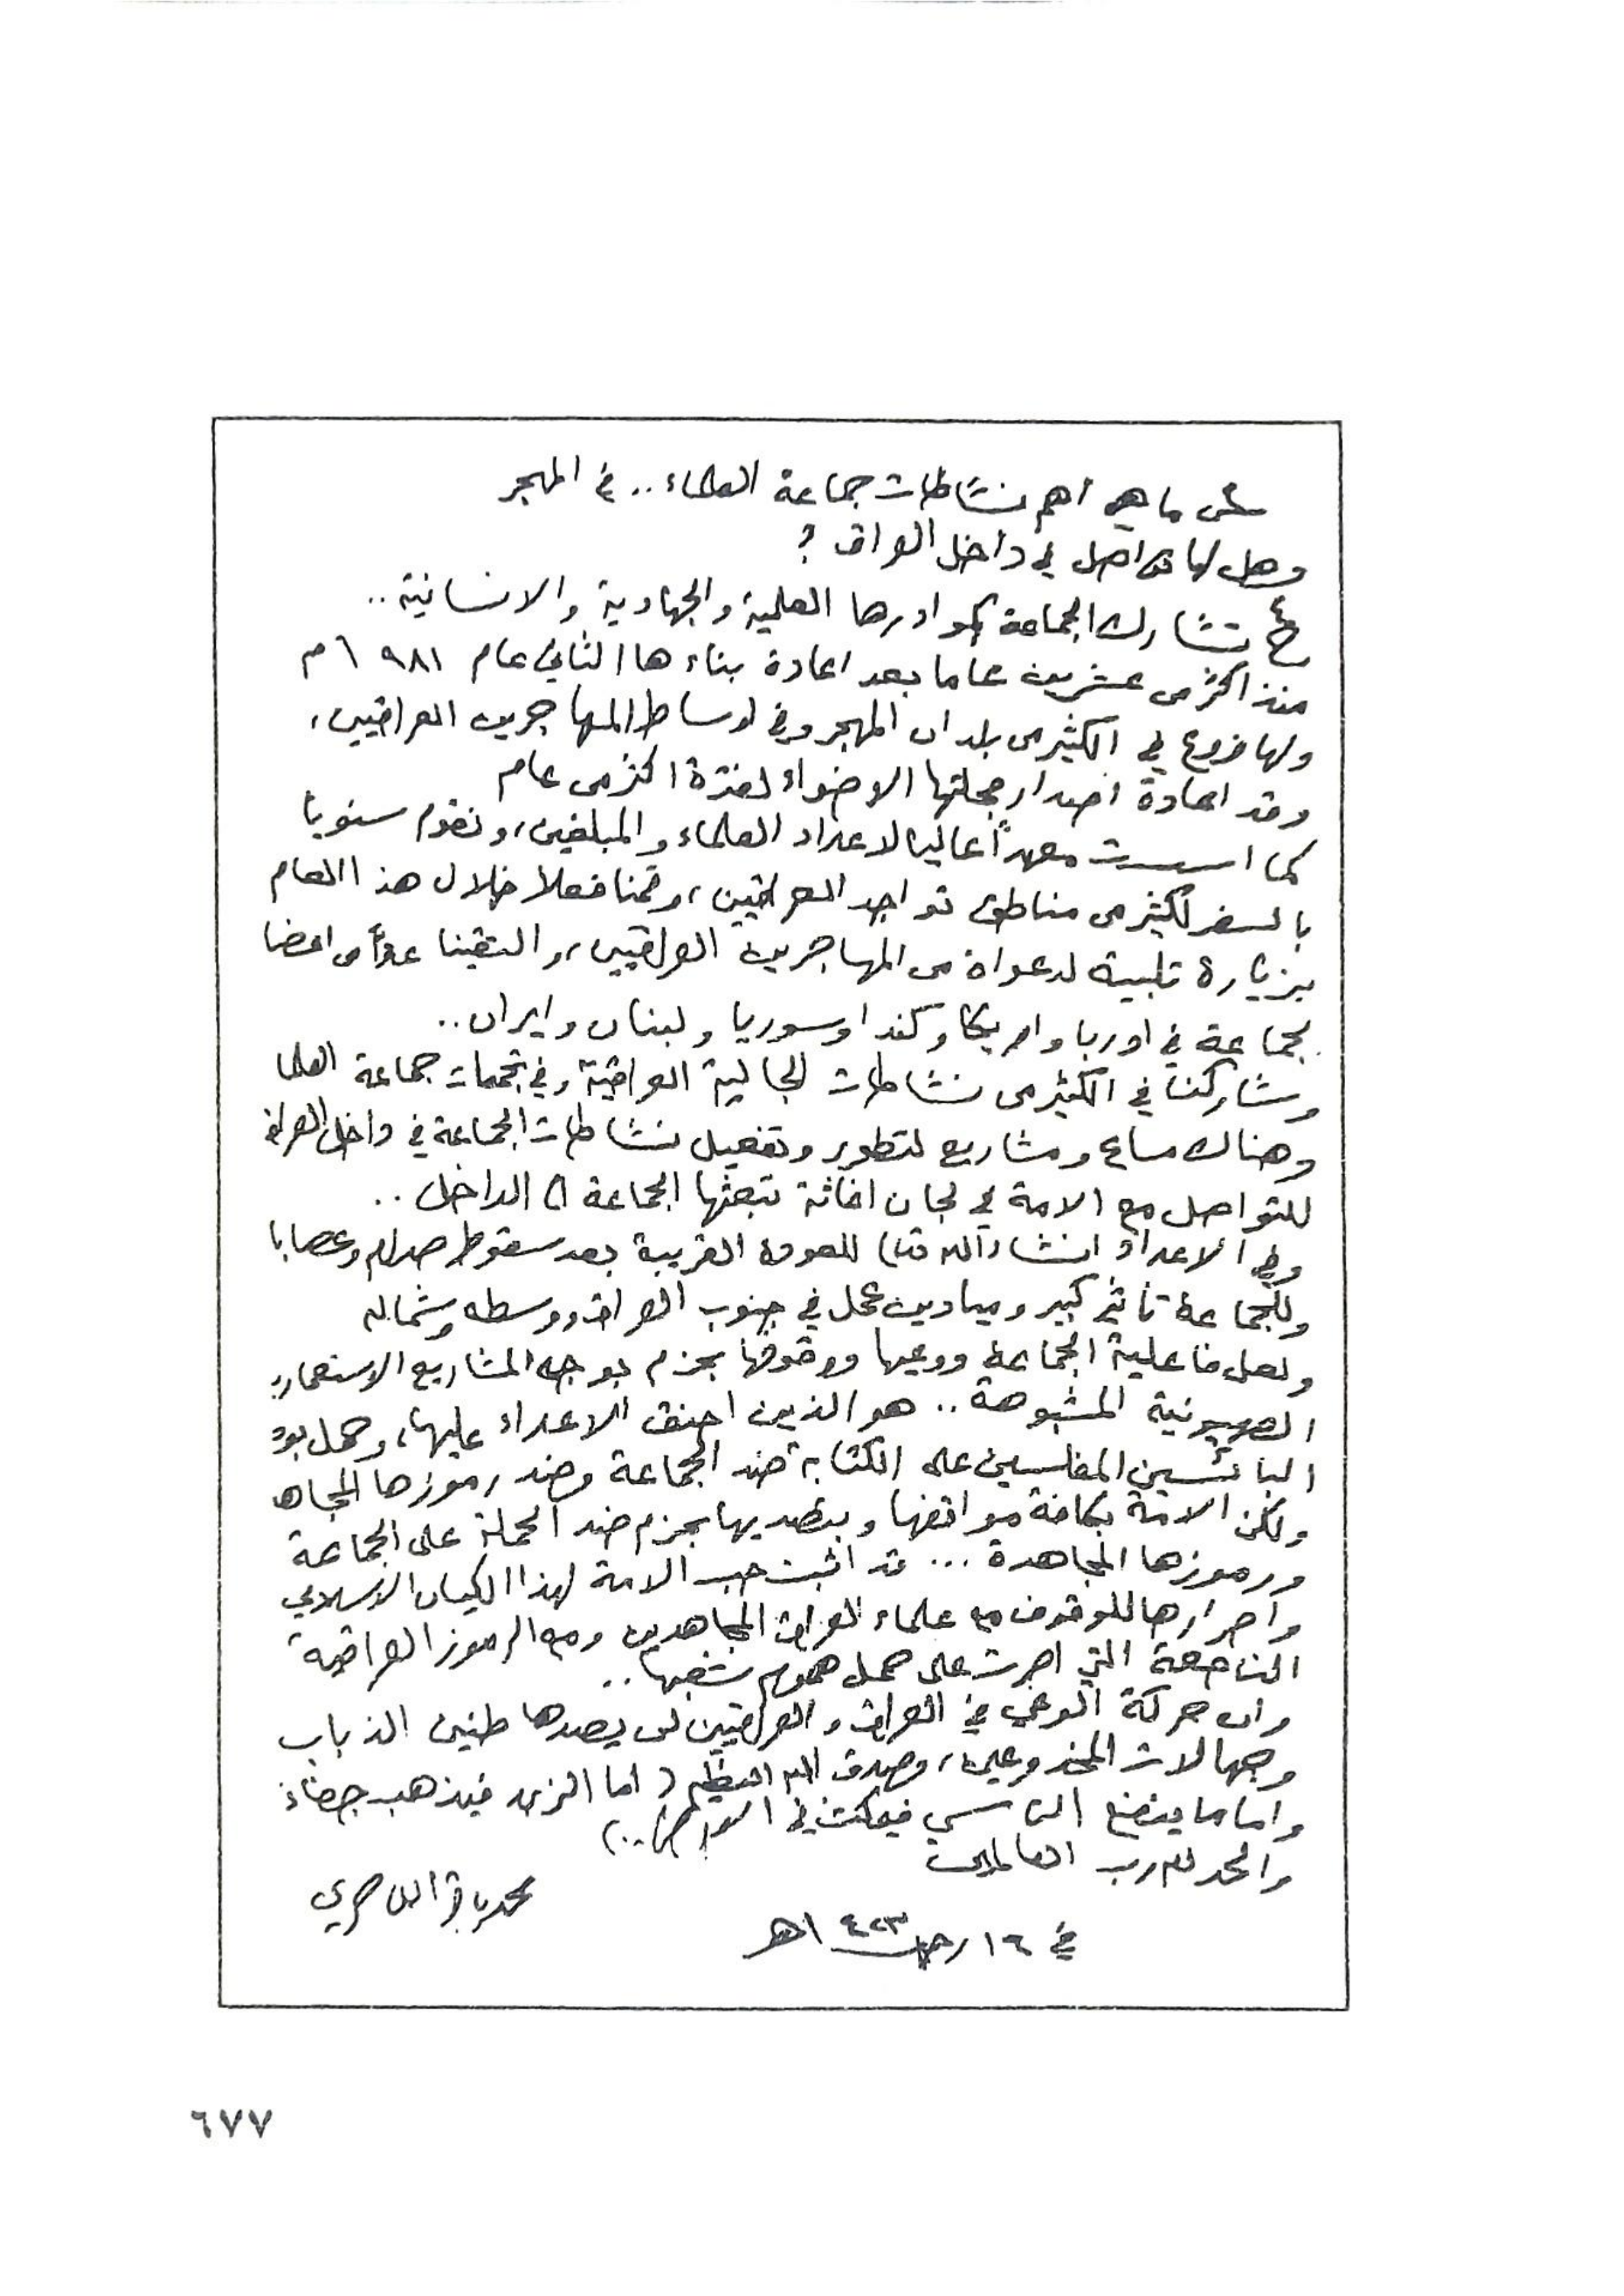 س ما هي أهم نشاطات جماعة العلماء.. في المهجر
وهل لها تواصل في داخل العراق ؟
ج تشارك الجماعة بكوادرها العلمية والجهادية والانسانية..
منذ اكثر من عشرين عاما بعد اعادة بناءها الثاني عام ١٩٨١ م
ولها فروع في الكثير من بلدان المهجر وفي اوساط المهاجرين العراقيين،
وقد اعادة اصدار مجلتها الاضواء لفترة اكثر من عام
كما اسست معهداً عاليا لاعداد العلماء والمبلغين، ونقوم سنويا
بالسفر لكثير من مناطق تواجد العراقيين، وقمنا فعلا خلال هذا العام
بزيارة تلبية لدعواة من المهاجرين العراقيين، والتقينا عدداً من اعضا
لجماعة في اوربا وامريكا وكندا وسوريا ولبنان وايران..
وشاركنا في الكثير من نشاطات الجالية العراقية وفي تجمعات جماعة العلما
وهناك مساع ومشاريع لتطوير وتفعيل نشاطات الجماعة في داخل العراق
للتواصل مع الامة في لجان اغاثة تبعثها الجماعة الى الداخل..
وفي الاعداد انشاءالله للعودة القريبة بعد سقوط صدام وعصابا
وللجماعة تاثير كبير وميادين عمل في جنوب العراق ووسطه وشماله
ولعل فاعلية الجماعة ووعيها ووقوفها بحزم بوجه المشاريع الاستعمارية
الصهيونية المشبوهة.. هو الذين احنق الاعداء عليها، وحمل بود
البائسين المفلسين على الكتابة ضد الجماعة وضد رموزها المجاه
ولكن الامة بكافة مواقفها وبتصديها بحزم ضد الحملة على الجماعة
ورموزها المجاهدة ... قد اثبت حب الامة لهذا الكيان الاسلامي
واصرارها للوقوف مع علماء العراق المجاهدين ومع الرموز العراقية
الناصعة التي اصرت على حمل هموم شعبها..
وان حركة الوعي في العراق والعراقيين لن يصدها طنين الذباب
وجهالات المخدوعين، وصدق الله العظيم ( اما الزبد فيذهب جفاءً
واما ما ينفع الناس فيمكث في الارض..)
والحمد لله رب العالمين
محمد باقر الناصري
في ١٦ رجب ١٤٢٣هـ
٦٧٧